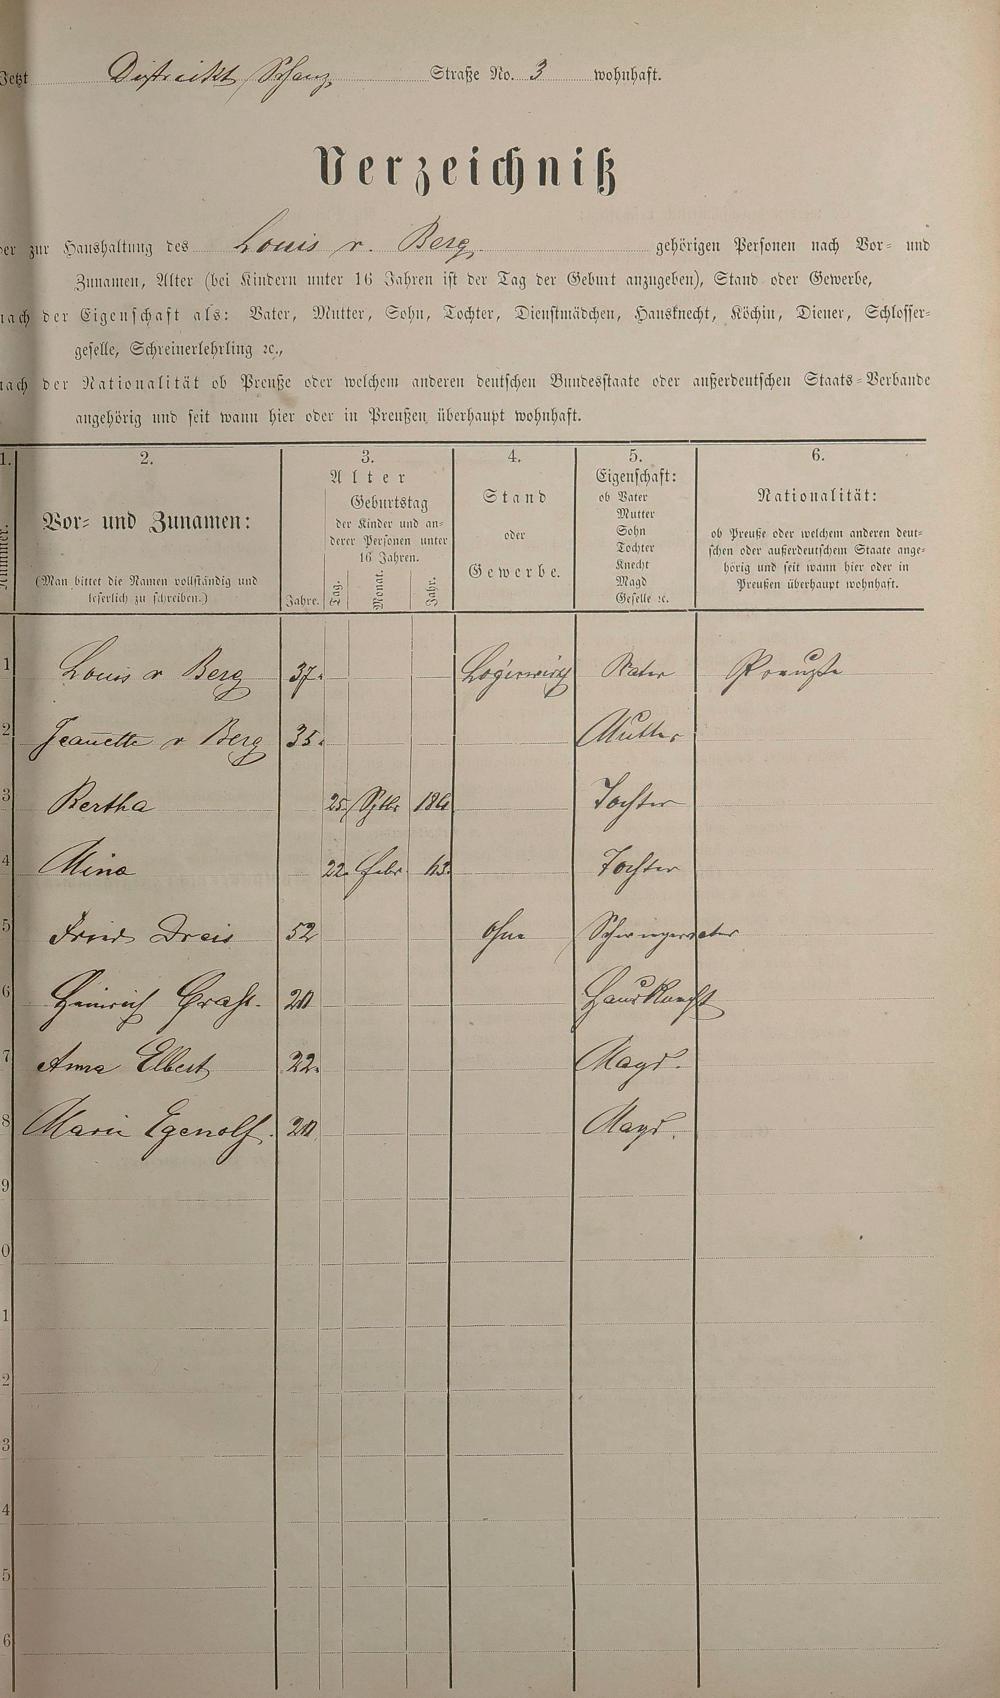 Jetzt Distrikt Schanz Straße No. 3 wohnhaft.
Verzeichniß
der zur Haushaltung des Louis v. Berg gehörigen Personen nach Vor- und
Zunamen, Alter (bei Kindern unter 16 Jahren ist der Tag der Geburt anzugeben), Stand oder Gewerbe,
nach der Eigenschaft als: Vater, Mutter, Sohn, Tochter, Dienstmädchen, Hausknecht, Köchin, Diener, Schlosser-
geselle, Schreinerlehrling ꝛc.,
nach der Nationalität ob Preuße oder welchem anderen deutschen Bundesstaate oder außerdeutschen Staats-Verbande
angehörig und seit wann hier oder in Preußen überhaupt wohnhaft.
1. 2. 3. 4. 5. 6.
Nummer.
Vor- und Zunamen:
(Man bittet die Namen vollständig und
leserlich zu schreiben.)
Alter
Geburtstag
der Kinder und an-
derer Personen unter
16 Jahren.
Jahre. Tag. Monat. Jahr.
Stand
oder
Gewerbe.
Eigenschaft:
ob Vater
Mutter
Sohn
Tochter
Knecht
Magd
Geselle ꝛc.
Nationalität:
ob Preuße oder welchem anderen deut-
schen oder außerdeutschem Staate ange-
hörig und seit wann hier oder in
Preußen überhaupt wohnhaft.
1 Louis v Berg 37. Logiswirth Vater Preuße
2 Jeanette v Berg 35. Mutter
3 Bertha 25. Sptbr Tochter
4 Mina 22. Febr 63. Tochter
5 Fried Dreis 52 ohne Schwiegervater
6 Heinrich 20 Hausknecht
7 Anna Elbert 22. Magd.
8 Marie Egenolf. 20 Magd.
9
0
1
2
3
4
5
6